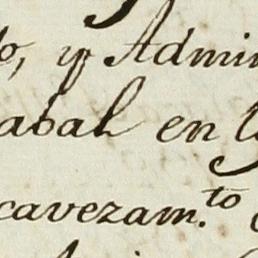 o, y Admin
abal en l
cavezam.to